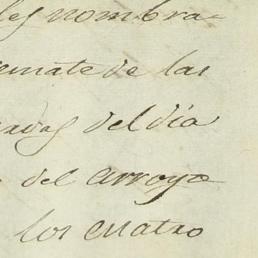 les nombra=
emate de las
adas del dia
del arroyo
los cuatro